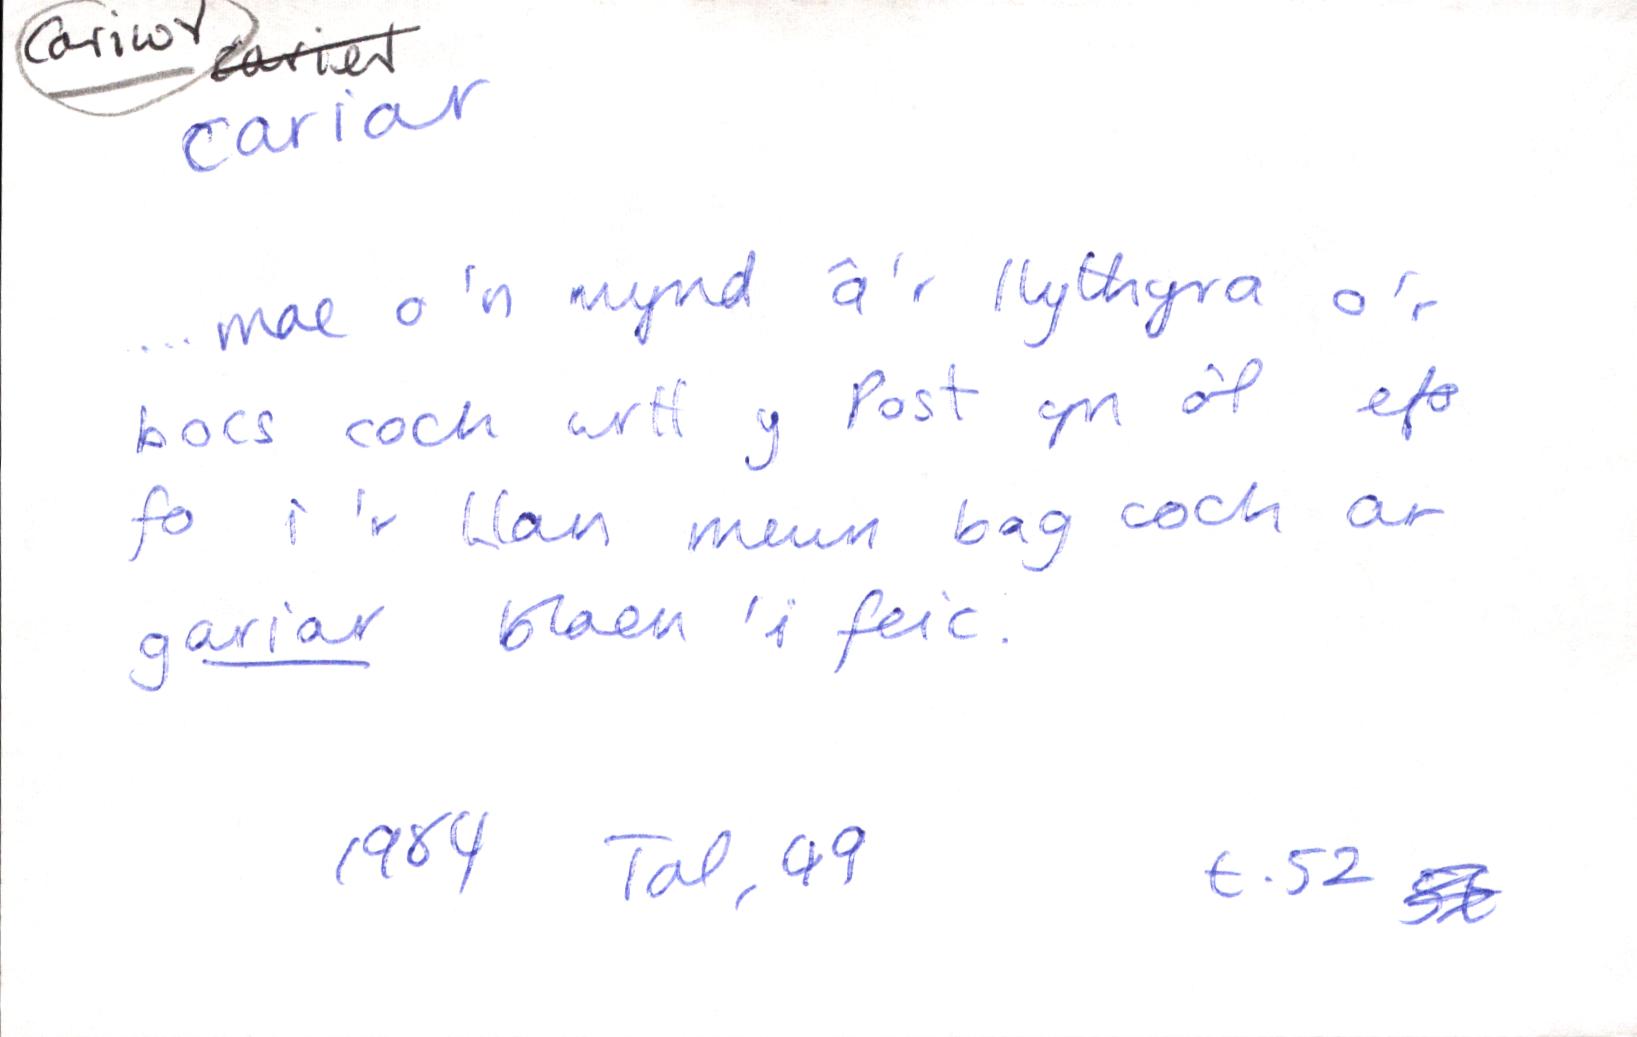 cariwr carier
cariar
...mae o'n mynd â'r llythyra o'r
bocs coch wrth y Post yn ôl efo
fo i'r Llan mewn bag coch ar
gariar blaen 'i feic.
1984 Tal, 49 t.52